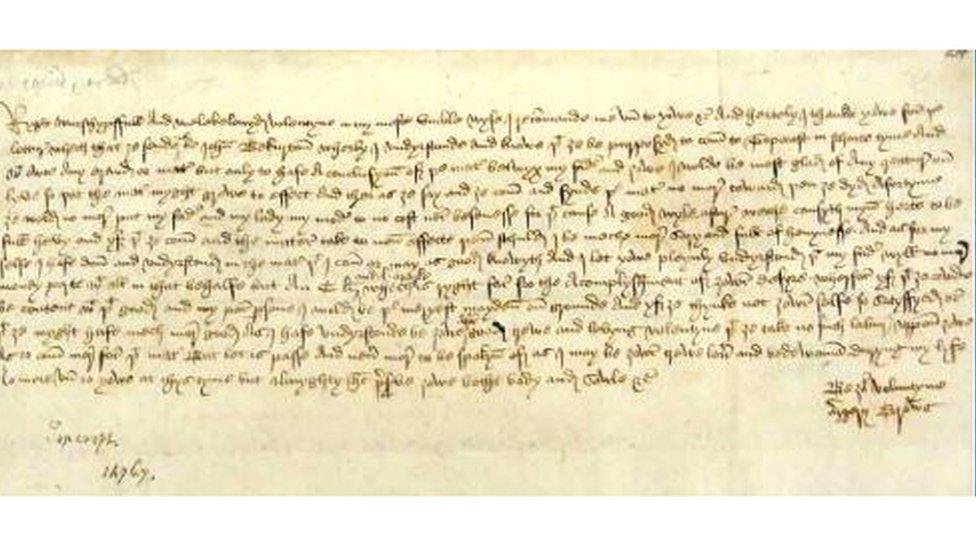 Ryght wurschypffull and welebelovyd volentyne in my moste umble wyse I recommande me un to yowe &c And hertely I thanke yowe for þe
lettur whech that ye sende me be John Bekurton wherby I undyrstonde and knowe þt ye be purposyd to com to Topcroft in schorte tyme And
wt owte any erand or mater but only to hafe A conclusyon of þe mater betwyx my fader and yowe I wolde be most glad of Any creatur on
lyve so þt the mater myght growe to effect And ther as ye say and ye com and fynde þe mater no mor toward then ye dyd Afortyme
ye wold no mor put my fader and my lady my moder to no cost ner besenesse for þt cause A good wyle aftyr weche causyth myn herte to be
full hevy and yf þt ye com and the mater take to non effecte then schuld I be meche mor sory and full of hevynesse And as for my
selfe I hafe don and undyrstond in the mater þt I can or may as good knowyth And I let yowe pleynly undyrstond þt my fader wyll no mor
money parte wt all in that behalfe but An C li and l marke whech is ryght far fro the Acomplyshment of yowr desyre wherfor yf þt ye cowde
be content wt þt good and my por persone I wold be þe meryest mayden on grounde And yf ye thynke not yowr selfe so satysfyed or
þt ye myght hafe mech mor good As I hafe undyrstonde be yowe good trewe and lovyng volentyne þt ye take no such labur uppon yowe
As to com mor for þt mater But let is passe And never mor to be spokyn of as I may be yowr trewe lover and bedewoman duryng my lyfe
No more un to yowe at thys tyme but Almyghty Jhs preserve yowe bothe body and sowle &c
Be yr voluntyne
Mergery Brews
Topcroft.
1476/7.